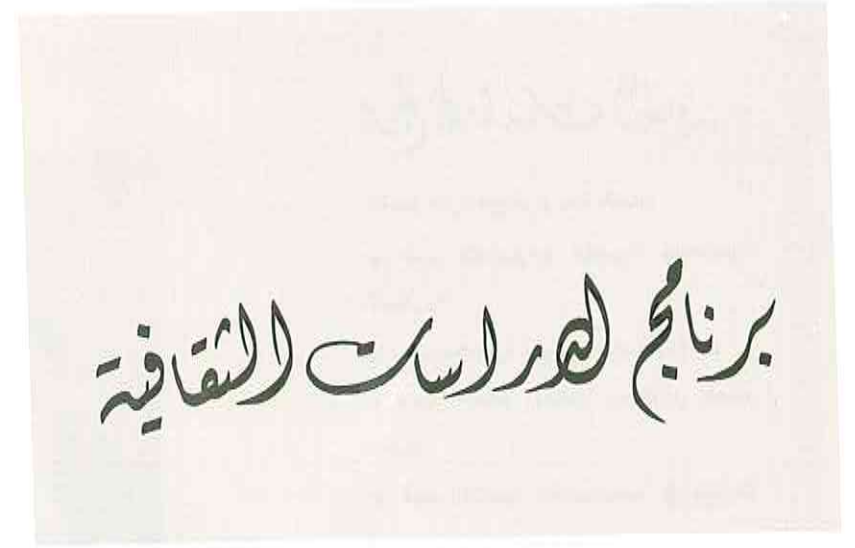 برنامج الدراسات الثقافية